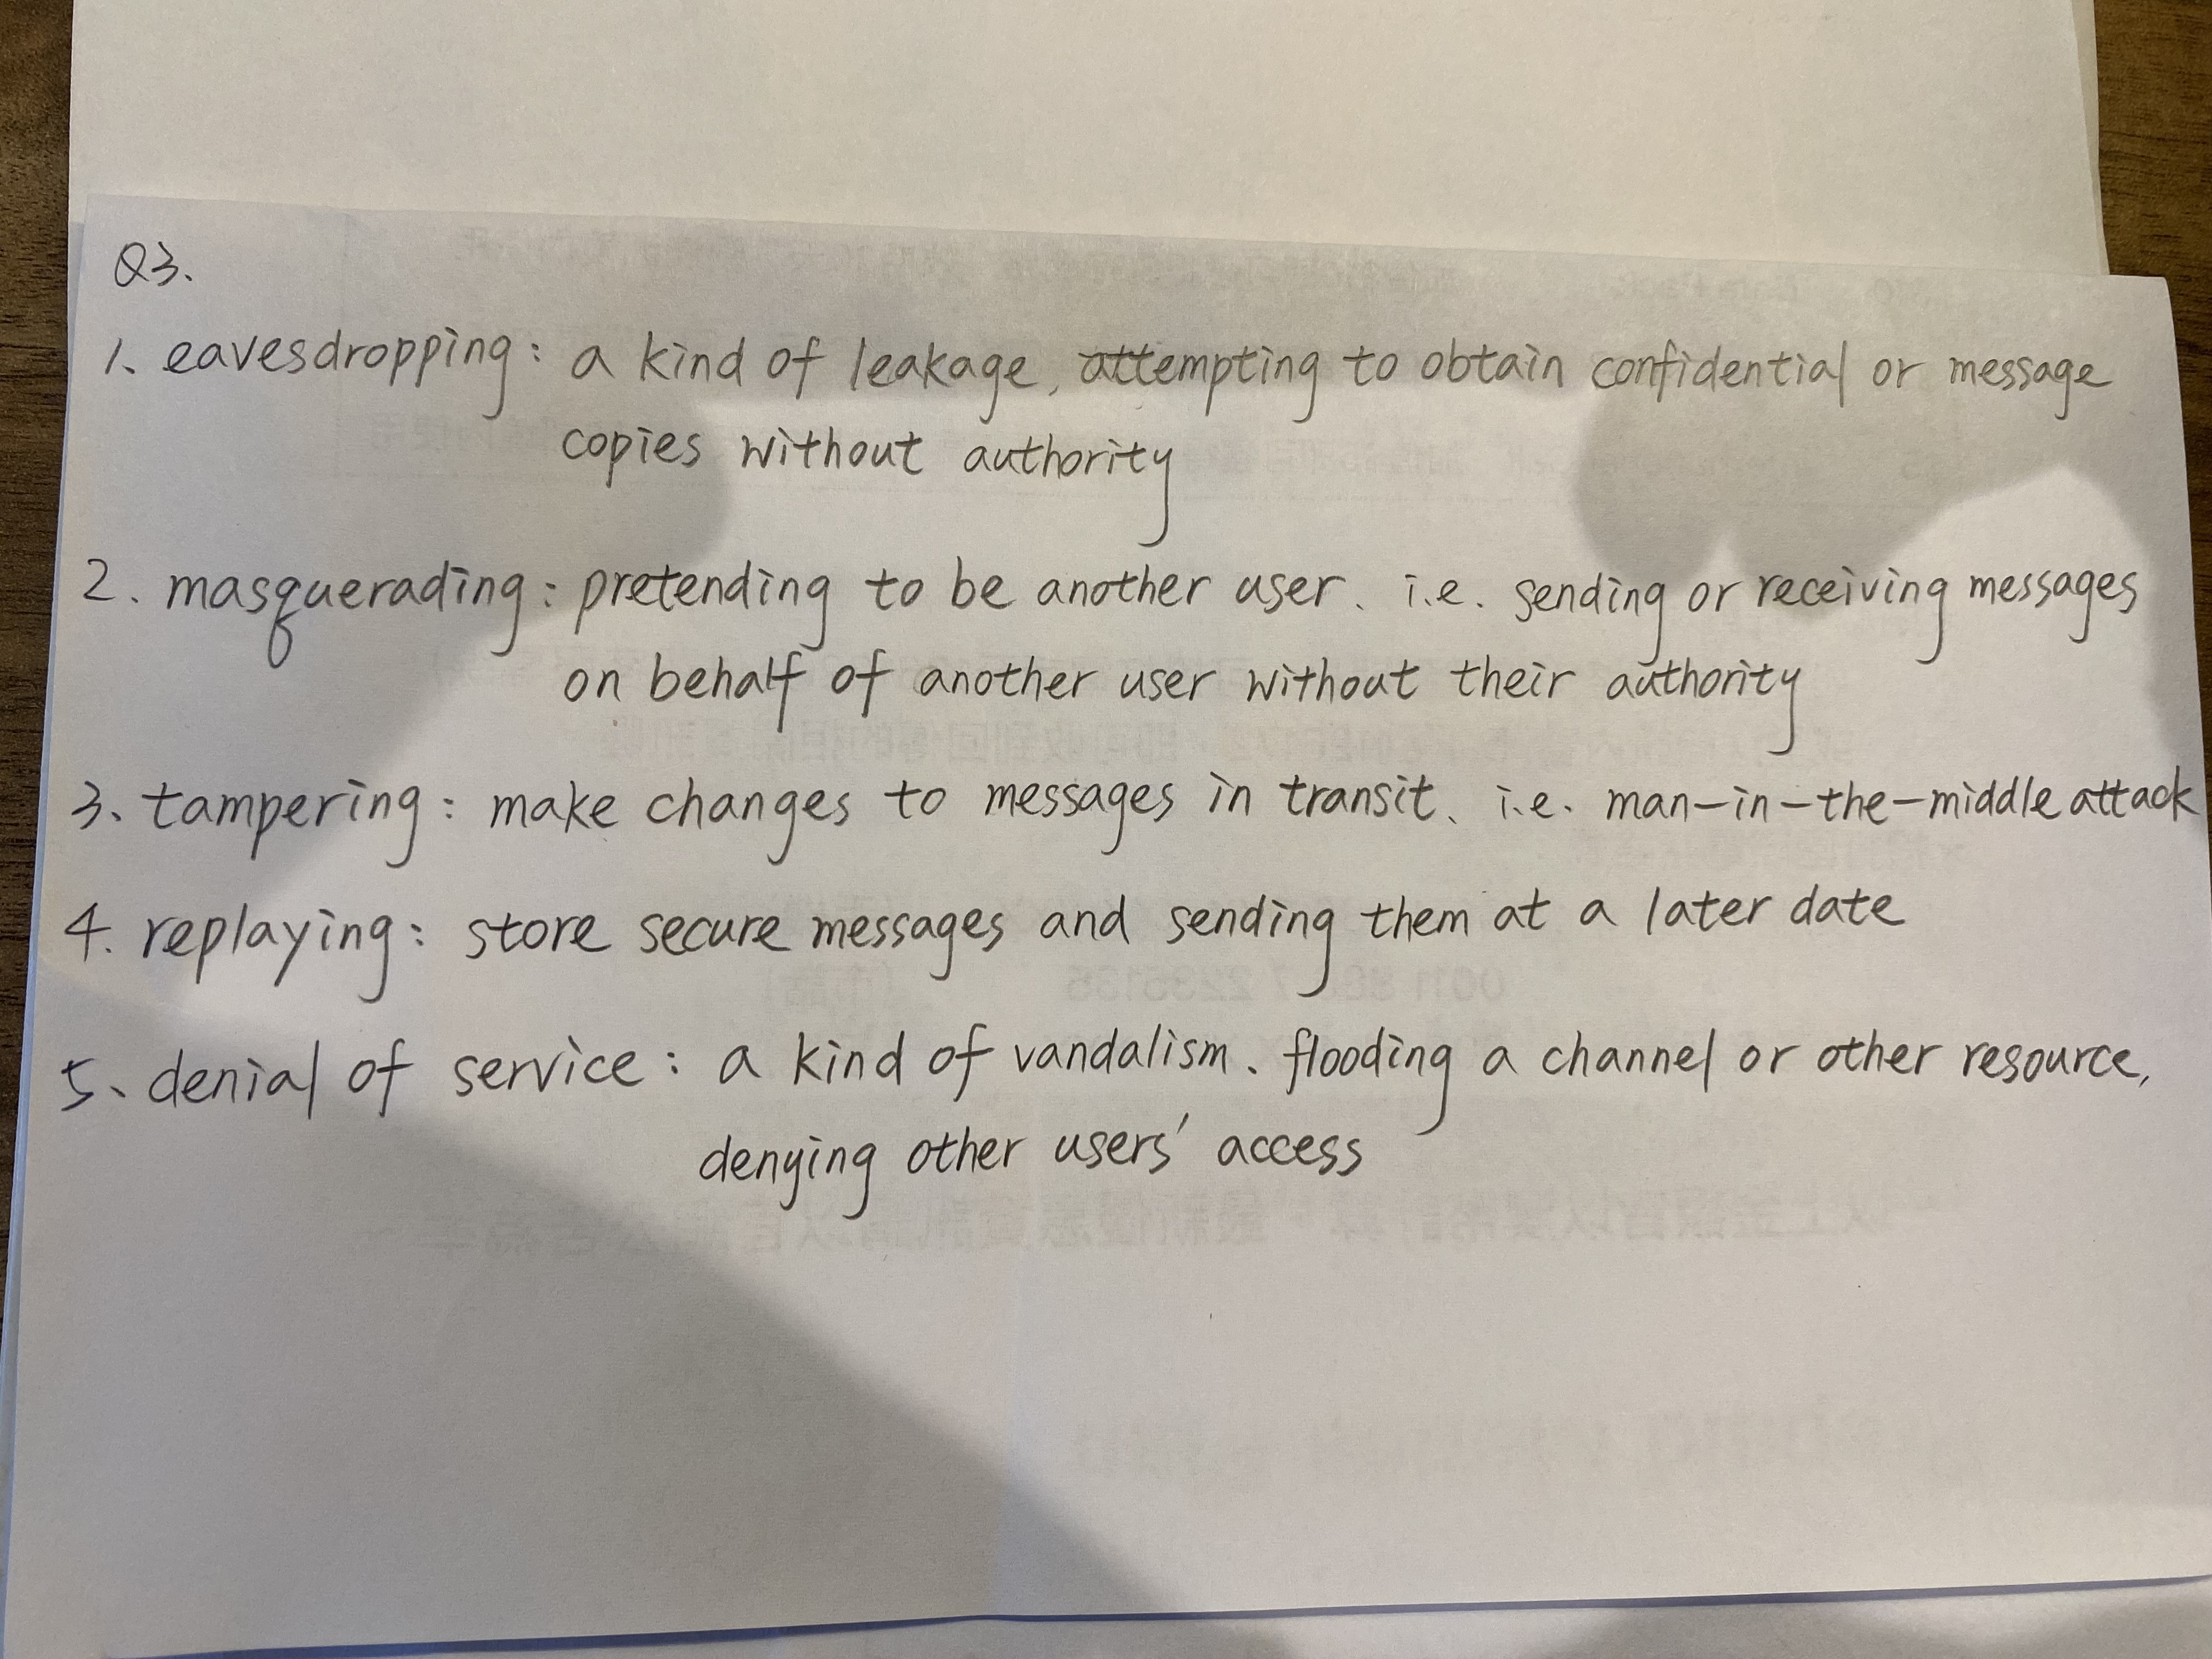 Q3.
1. eavesdropping: a kind of leakage, attempting to obtain confidential or message
copies without authority
2. masquerading: pretending to be another user. i.e. sending or receiving messages
on behalf of another user without their authority
3. tampering: make changes to messages in transit. i.e. man-in-the-middle attack
4. replaying: store secure messages and sending them at a later date
5. denial of service: a kind of vandalism. flooding a channel or other resource,
denying other users' access